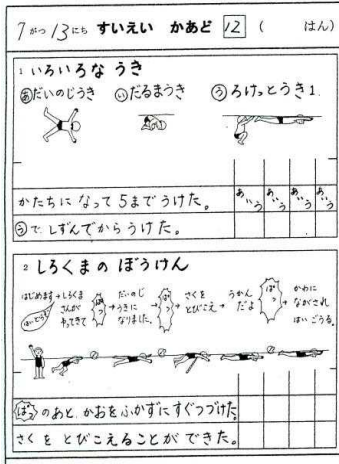 7がつ 13にち すいえい かあど 12 ( はん)
1 いろいろな うき
あだいのじうき いだるまうき うろけっとうき1.
かたちに なって 5まで うけた。 あいう あいう あいう あいう
うで しずんでから うけた。
2 しろくまの ぼうけん
はじめます→しろくまさんがやってきて ばっ だいのじうきになりました。 ばっ さくをとびこえ→うかんだよ ばっ かわにながされ はい ごうる。
はいどうぞ
ばっ のあと、かおをふかずにすぐつづけた
さくを とびこえることが できた。